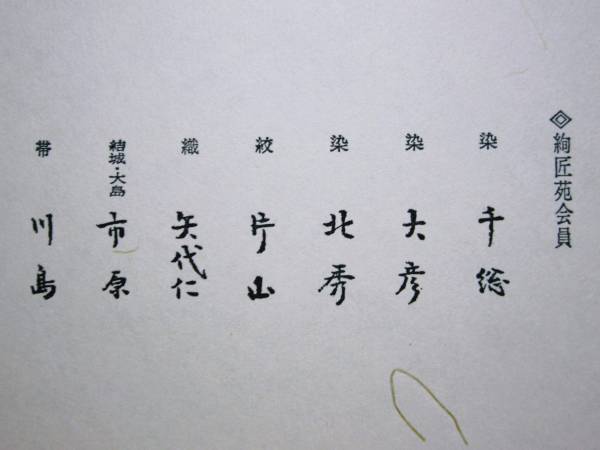 ◇絢匠苑会員
染 千總
染 大彦
染 北秀
絞 片山
織 矢代仁
結城・大島 市原
帯 川島